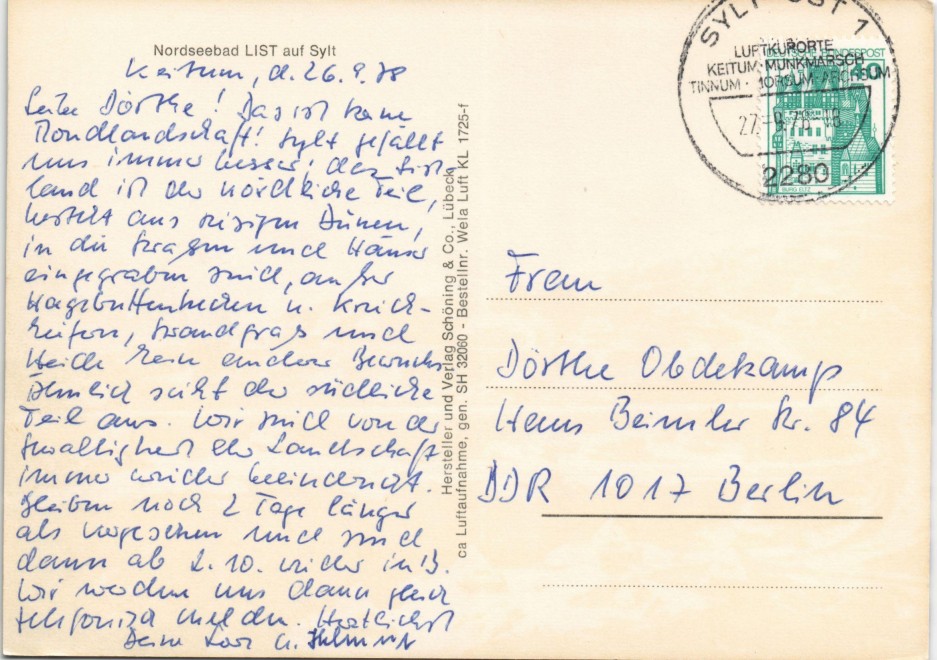 Nordseebad LIST auf Sylt
Keitum, d. 26.9.78
Liebe Dörthe! Das ist keine
Mondlandschaft! Sylt gefällt
uns immer besser, das
land ist der nördliche Teil,
besteht aus riesigen Dünen,
in die Straßen und Häuser
eingegraben sind, außer
Hagebuttenhecken u. Kriech-
kiefern, Strandgras und
Heide kein anderer Bewuchs
Ähnlich sieht der südliche
Teil aus. Wir sind von der
Gewaltigkeit der Landschaft
immer wieder beeindruckt.
Bleiben noch 2 Tage länger
als vorgesehen und sind
dann ab 2.10. wieder in B.
Wir werden uns dann gleich
telefonisch melden. Herzlichst
Deine u. Helmut
Hersteller und Verlag Schöning & Co., Lübeck
ca Luftaufnahme, gen. SH 32060 - Bestellnr. Wela Luft KL 1725-f
SYLT-OST 1
LUFTKURORTE
KEITUM·MUNKMARSCH
TINNUM·MORSUM·ARCHSUM
27.-9.78-18
2280
DEUTSCHE BUNDESPOST
Frau
Dörthe Obdekamp
Hans Beimler Str. 84
DDR 1017 Berlin